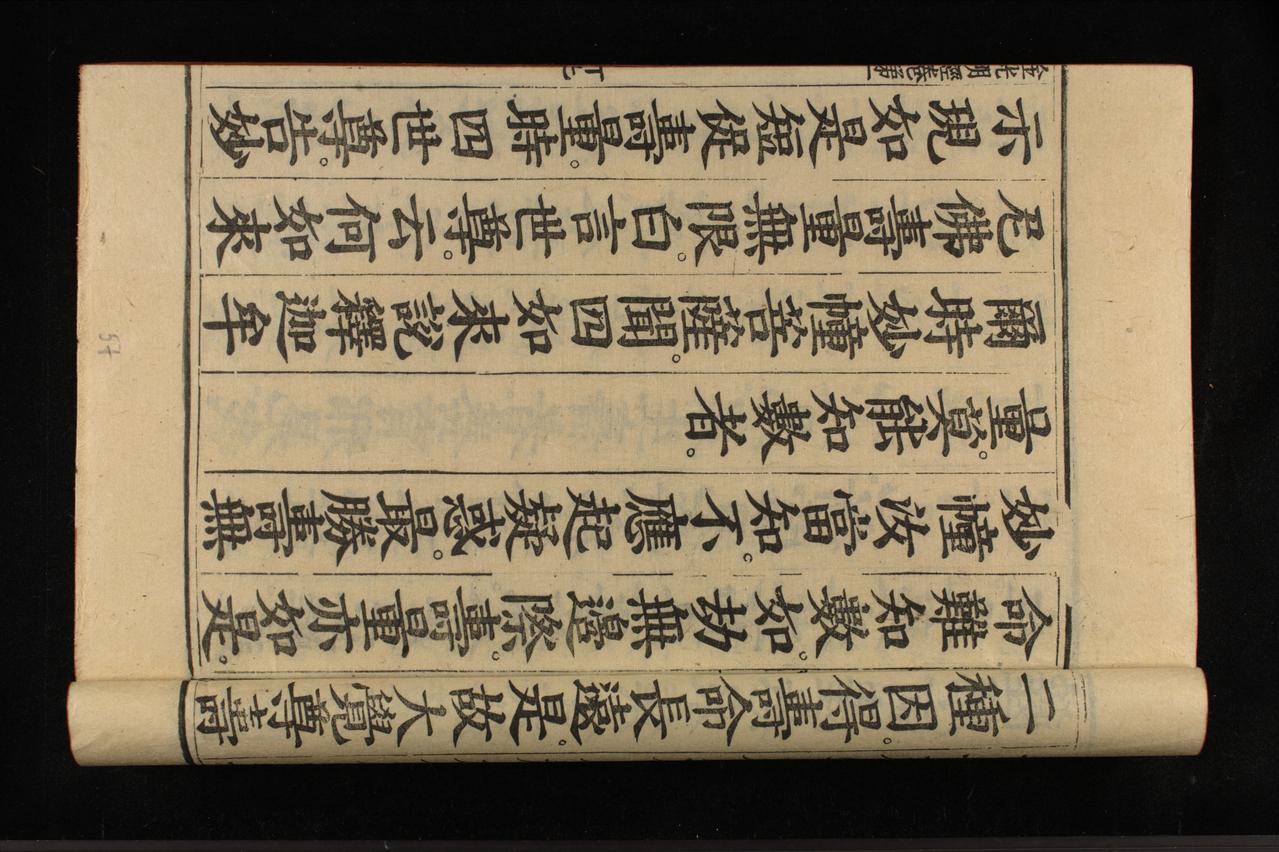 二種因。得壽命長遠。是故大覺尊壽
命難知數。如劫無邊際。壽量亦如是。
妙幢汝當知。不應起疑惑。最勝壽無
量。莫能知數者。
爾時妙幢菩薩。聞四如來說釋迦牟
尼佛壽量無限。白言世尊。云何如來
示現如是短促壽量。時四世尊。告妙
57